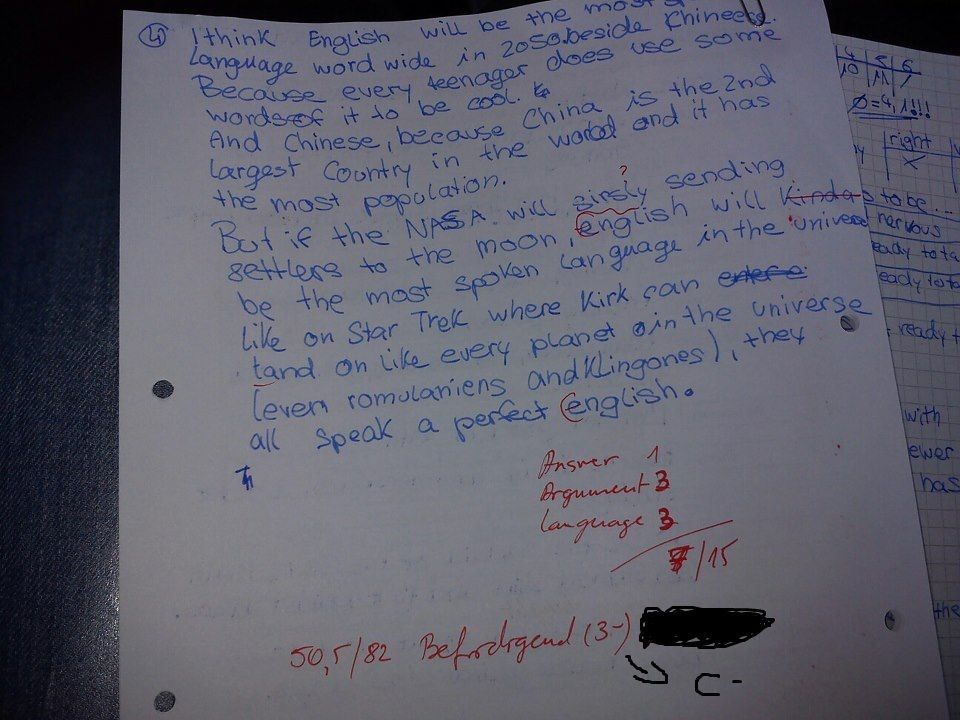 4) I think English will be the most
Language word wide in 2050.beside Chineese.
Because every teenager does use some
words of it to be cool.
And Chinese, because China is the 2nd
largest Country in the world and it has
the most population.
?
But if the NASA will firstly sending
settlers to the moon, english will kinda
be the most spoken Language in the universe
like on Star Trek where Kirk can
land on like every planet in the universe
(even romulaniens and Klingones), they
all speak a perfect english.
Answer 1
Argument 3
Language 3
7/15
50,5/82 Befriedigend (3-)
C-
4 5 6
10 11 1
Ø=4,1!!!
right
x
s to be...
nervous
eady to ta
eady to ta
ready t
with
ewer
has
the